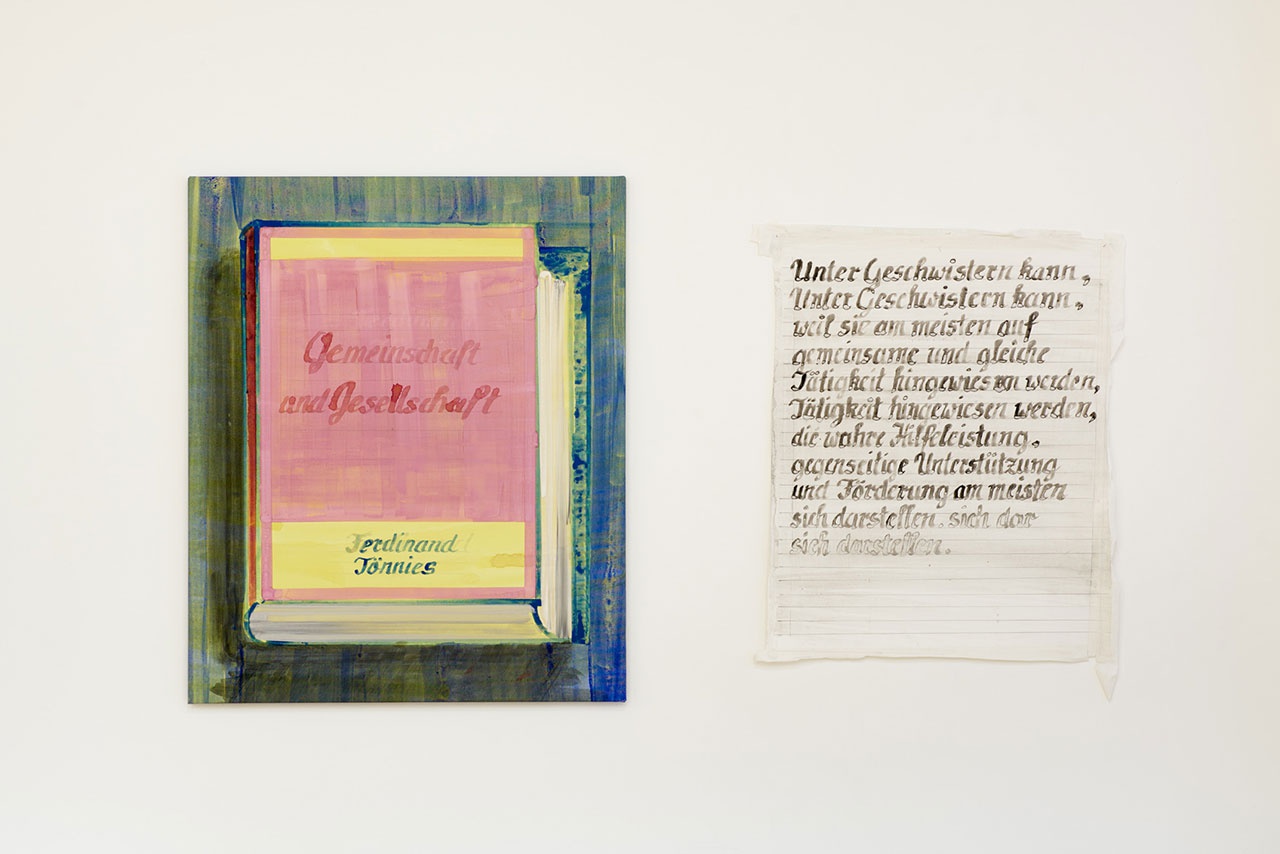 Gemeinschaft
und Gesellschaft
Ferdinand
Tönnies
Unter Geschwistern kann,
Unter Geschwistern kann,
weil sie am meisten auf
gemeinsame und gleiche
Tätigkeit hingewiesen werden,
Tätigkeit hingewiesen werden,
die wahre Hilfeleistung,
gegenseitige Unterstützung
und Förderung am meisten
sich darstellen. sich dar
sich darstellen.